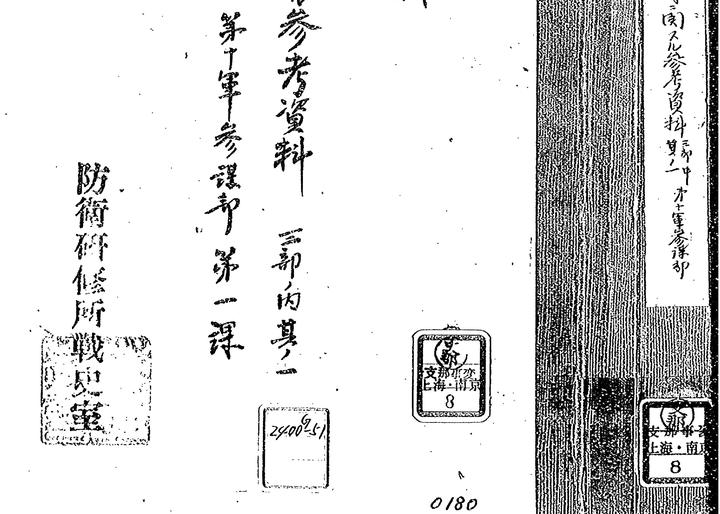 ニ関スル参考資料 三部ノ中 其ノ一 第十軍参謀部
支那事変
上海・南京
8
支那事変
上海・南京
8
0180
参考資料 三部ノ内其ノ一
第十軍参謀部 第一課
防衛研修所戦史室